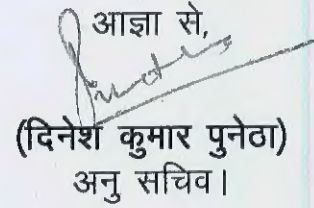 आज्ञा से,
(दिनेश कुमार पुनेठा)
अनु सचिव।